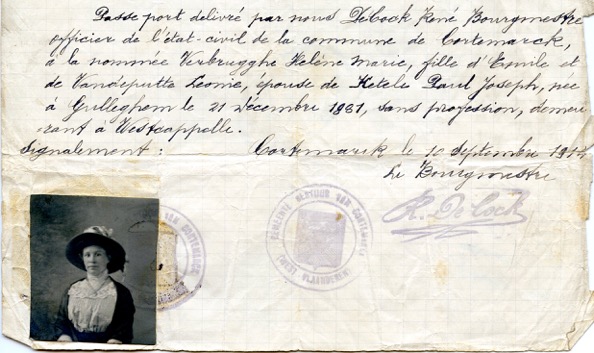 Passe port delivré par nous DeCock, René Bourgmestre
officier de l'état-civil de la commune de Cortemarck,
à la nommée Verbrugghe Hélène Marie, fille d'Emile et
de Vandeputte Leonie, épouse de Ketele Paul Joseph, née
à Gulleghem le 21 Décembre 1881, sans profession, demeu
rant à Westcappelle.
Signalement : Cortemarck le 10 Septembre 191
Le Bourgmestre
R. De Cock
GEMEENTE BESTUUR VAN CORTEMARCK
VAN CORTEMARCK